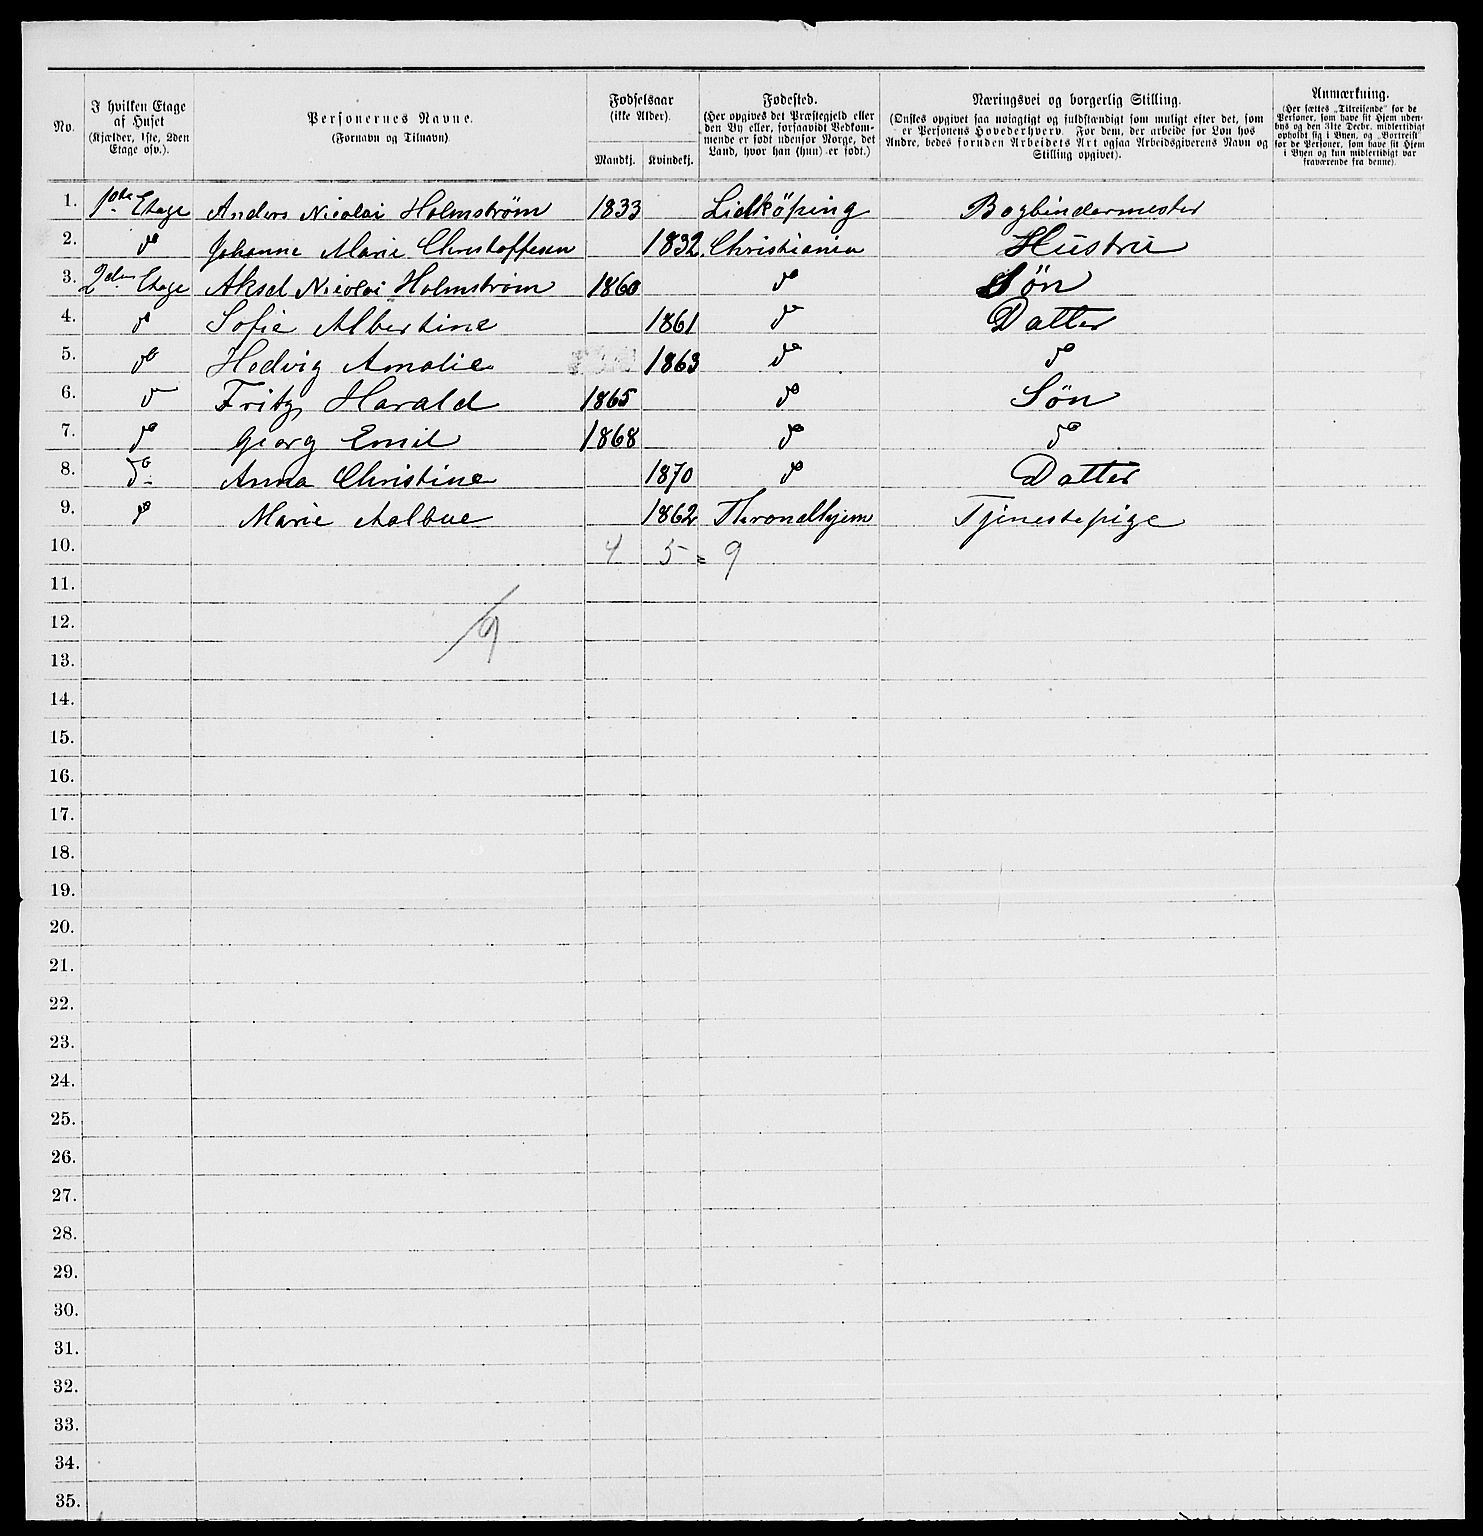 No. | I hvilken Etage af Huset (Kjælder, 1ste, 2den Etage osv.). | Personernes Navne. (Fornavn og Tilnavn). | Fødselsaar (ikke Alder). Mandkj. | Kvindekj. | Fødested. (Her opgives det Præstegjeld eller den By eller, forsaavidt Vedkommende er født udenfor Norge, det Land, hvor han (hun) er født.) | Næringsvei og borgerlig Stilling. (Ønskes opgivet saa nøiagtigt og fuldstændigt som muligt efter det, som er Personens Hovederhverv. For dem, der arbeide for Løn hos Andre, bedes foruden Arbeidets Art ogsaa Arbeidsgiverens Navn og Stilling opgivet). | Anmærkning. (Her sættes „Tilreisende" for de Personer, som have sit Hjem udenbys og den 31te Decbr. midlertidigt opholdt sig i Byen, og „Bortreist" for de Personer, som have sit Hjem i Byen og kun midlertidigt var fraværende fra denne).
1. 1ste Etage Anders Nicolai Holmstrøm 1833 Lidköping Bogbindermester
2. do Johanne Marie Christoffesen 1832 Christiania Hustru
3. 2den Etage Aksel Nicolai Holmstrøm 1860 do Søn
4. do Sofie Albertine 1861 do Datter
5. do Hedvig Amalie 1863 do do
6. do Fritz Harald 1865 do Søn
7. do Georg Emil 1868 do do
8. do Anna Christine 1870 do Datter
9. do Marie Aalbue 1862 Throndhjem Tjenestepige
10. 4 5 = 9
11.
12.
9
13.
14.
15.
16.
17.
18.
19.
20.
21.
22.
23.
24.
25.
26.
27.
28.
29.
30.
31.
32.
33.
34.
35.